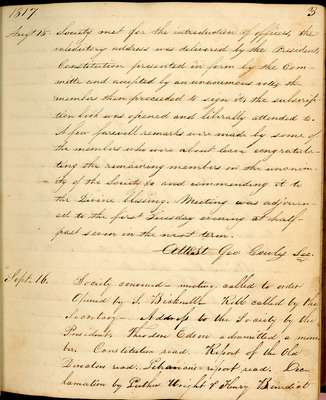 1817
3
Augt 18 Society met for the introduction of officers, the
valedictory address was delivered by the President,
Constitution presented in form by the Com-
mitte and accepted by an unanimous vote, the
members then proceeded to sign it, the subscrip-
tion book was opened and liberally attended to.
A few farewell remarks were made by some of
the members who were about leave congratula-
ting the remaining members on the unanim-
ity of the Society & and commending it to
the Divine blessing. Meeting was adjourn-
ed to the first Tuesday evening at half
past seven in the next term.
Attest Geo Cowls Sec.
Sept. 16. Society convened - meeting called to order
Opened by S. Bicknell. Roll called by the
Secretary - Address to the Society by the
President, Theodore Edson admitted a mem
ber. Constitution read. Report of the Old
Directors read. Librarians report read. Dec
lamation by Luther Wright & Henry Benedict